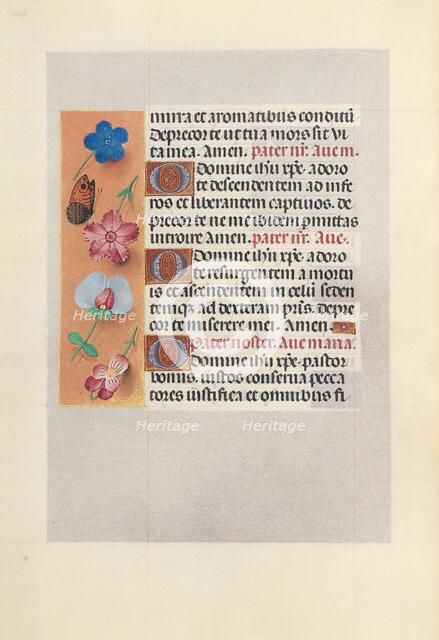 mirra et aromatibus conditū
Deprecor te ut tua mors sit vi
ta mea. Amen. Pater nr̄. Aue m.
O Domine ihū xp̄e. adoro
te descendentem ad infe
ros et liberantem captiuos. de
precor te ne me ibidem pmittas
introire Amen. Pater nr̄. Aue.
O Domine ihū xp̄e. adoro
te resurgentem a mortu
is et ascendentem in celū seden
temq; ad dexteram pr̄is. depre
cor te miserere mei. Amen
Pater noster. Aue maria.
O Domine ihū xp̄e. pastor
bonus. iustos conserua pecca
tores iustifica et omnibus fi
Heritage
Heritage
Heritage
Heritage
Heritage
Heritage